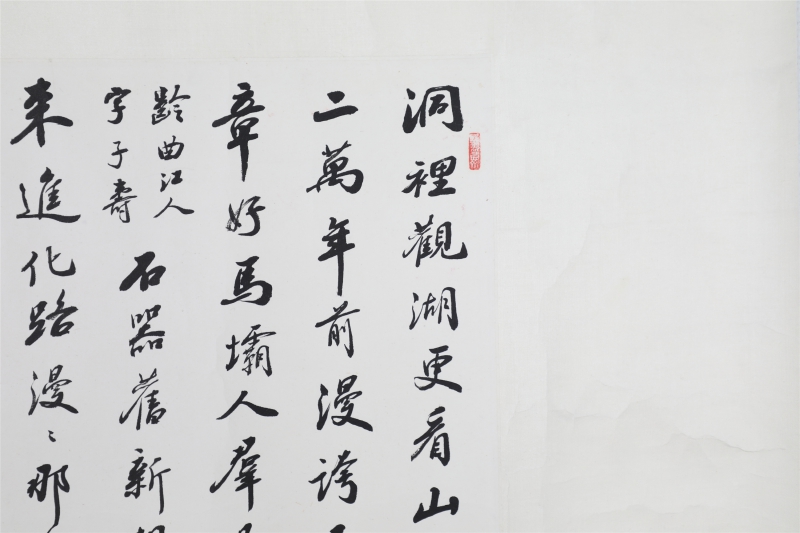 洞裡觀湖更看山
二萬年前漫誇
章好馬壩人群
齡曲江人
字子壽
石器舊新
来進化路漫〻那